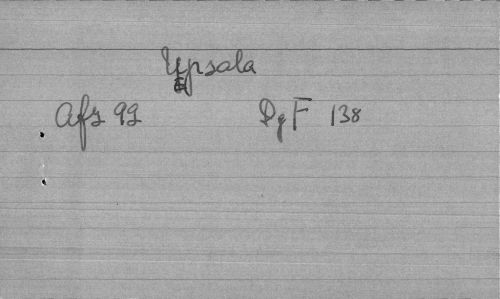 Upsala
Afz 92 DgF 138